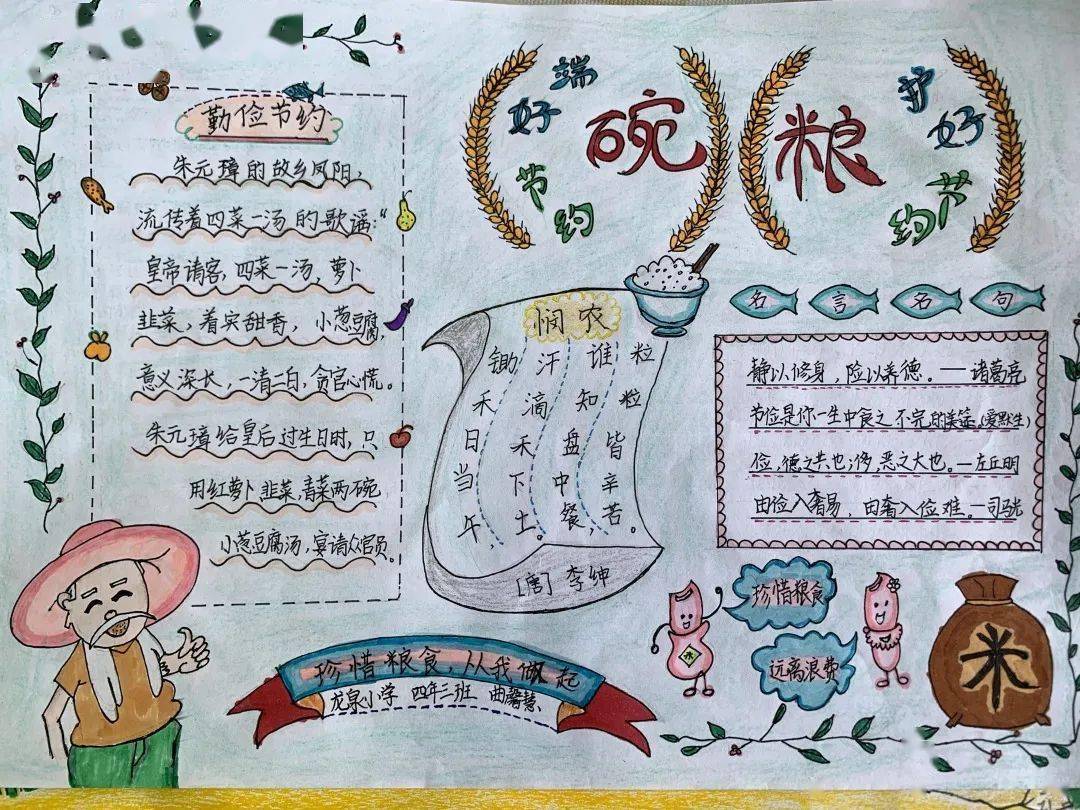 勤俭节约
朱元璋的故乡凤阳，
流传着四菜一汤的歌谣：“
皇帝请客，四菜一汤，萝卜
韭菜，着实甜香，小葱豆腐，
意义深长，一清二白，贪官心慌。
朱元璋给皇后过生日时，只
用红萝卜韭菜，青菜两碗
小葱豆腐汤，宴请众官员。
端好节约碗
护好节约粮
悯农
锄禾日当午，
汗滴禾下土。
谁知盘中餐，
粒粒皆辛苦。
[唐] 李绅
名言名句
静以修身，险以养德。——诸葛亮
节俭是你一生中食之不完的美筵。(爱默生)
俭，德之共也；侈，恶之大也。—左丘明
由俭入奢易，由奢入俭难。—司马光
珍惜粮食
远离浪费
米
珍惜粮食，从我做起
龙泉小学 四年三班 曲馨慧